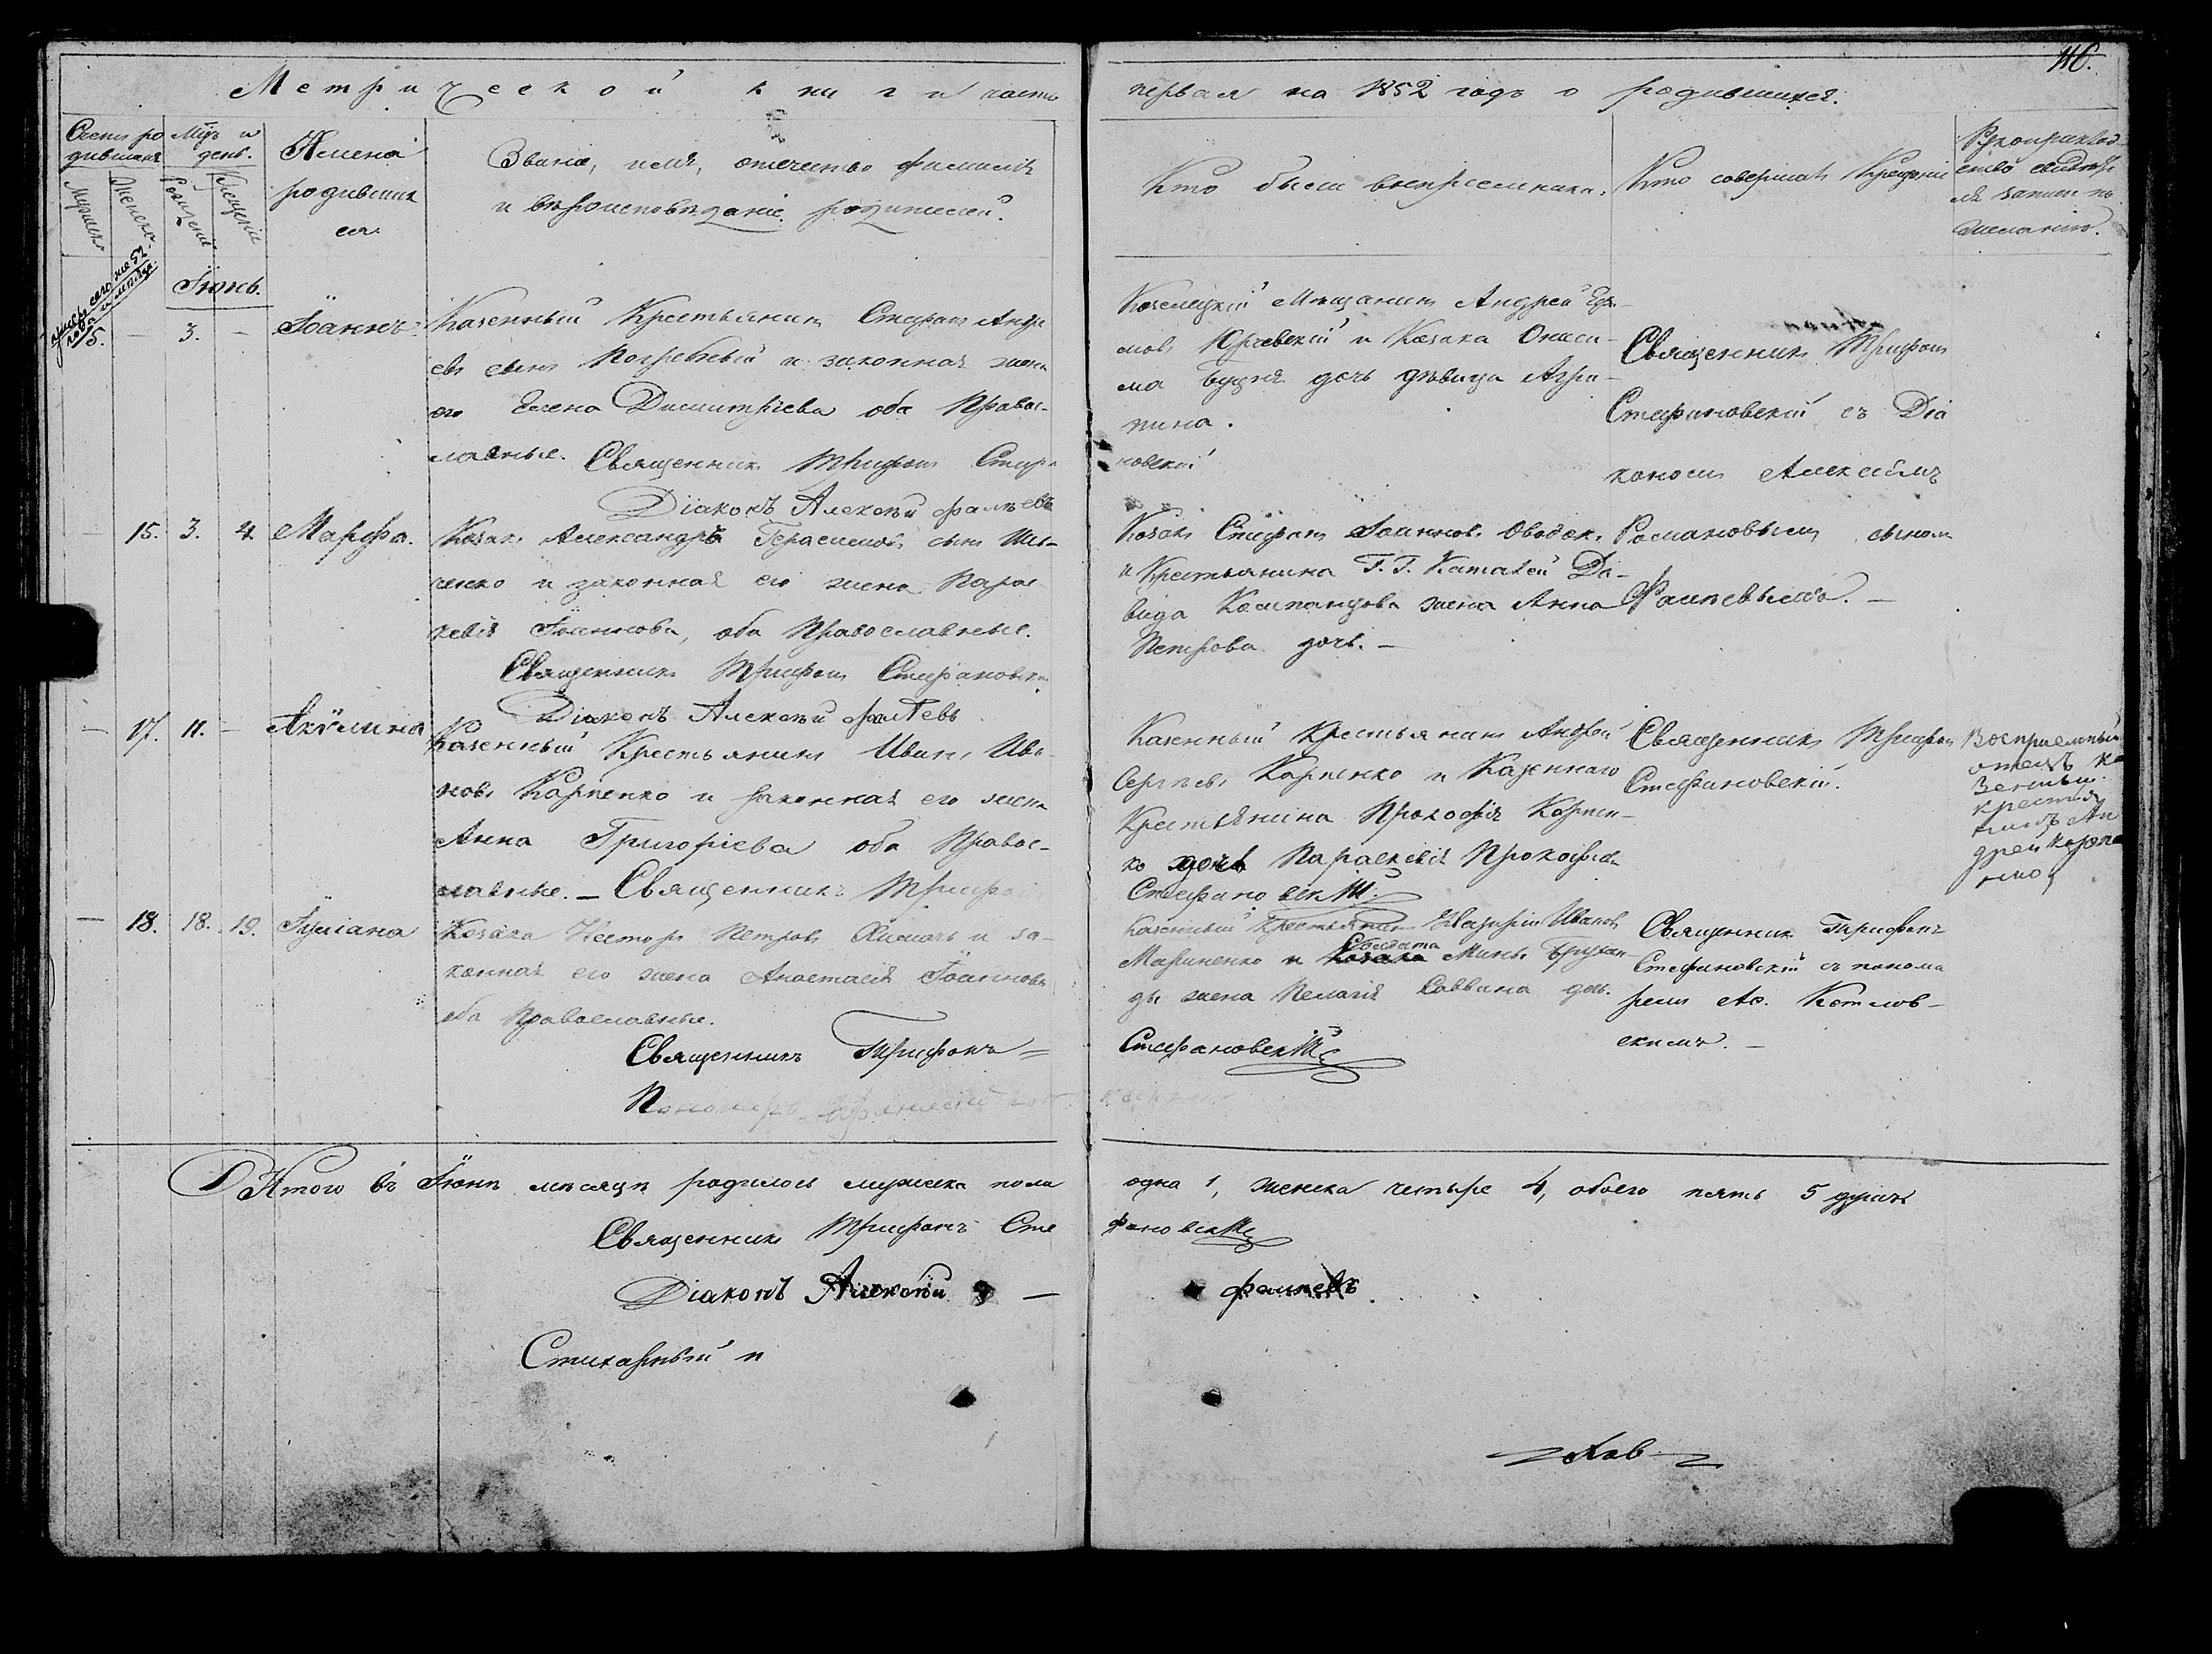 116.
Метрической книги часть
первая на 1852 годъ о родившихся.
Счетъ ро
дившихся
Мужеска
Женска
Мѣсяцъ и
день.
Рожденія
Крещенія
Имена
родивших
ся
Званіе, имя, отчество фамилія
и вѣроисповѣданіе родителей.
Кто были воспріемники.
Кто совершалъ Крещеніе
Рукоприклад
ство свидѣте
ля записи по
желанію.
Іюнь.
умеръ сего же 52
года
15. — 3. — Іоаннъ
Казенный Крестьянинъ Стефанъ Андре
евъ сынъ Погребный и законная жена
его Елена Димитріева оба Правос-
лавные. Священникъ Трифонъ Стефа
Діаконъ Алексѣй Фалѣевъ
Козелецкій Мѣщанинъ Андрей
мовъ Юрчевскій и КозакаОниси-
ма дочь дѣвица Агри-
пина.
новскій
Священникъ Трифонъ
Стефановскій съ Діа
кономъ Алексѣемъ
— 15. 3. 4. Марфа.
Козакъ Александръ Герасимовъ сынъ
ченко и законная его жена Парас
кевія Іоаннова, оба Православные.
Священникъ Трифонъ Стефановскій
Діаконъ Алексѣй Фалѣевъ
Козакъ Стефанъ Іоанновъ
и Крестьянина Г. Г. Каталей Да-
вида жена Анна
Петрова дочь. —
Романовымъ сыномъ
Фалѣевымъ. —
— 17. 11. — Акулина
Казенный Крестьянинъ Иванъ Ива
новъ Карпенко и законная его жена
Анна Григоріева оба Правос-
лавные. — Священникъ Трифонъ
Казенный Крестьянинъ Андрей
Сергѣевъ Карпенко и Казеннаго
Крестьянина Прокофія Карпен-
ко дочь Параскевія Прокофіева
Стефановскій
Священникъ Трифонъ
Стефановскій.
Воспріемный
отецъ Ка
зенный
крестья
нинъ Ан
дрей Карпе
нко
— 18. 18. 19. Іуліана
Козака Несторъ Петровъ и за-
конная его жена Анастасія Іоаннова
оба Православные.
Священникъ Трифонъ =
Пономарь
Казенный Крестьянинъ Иванов
Мариненко и Козака Солдата Мины
ды жена Пелагія Саввина дочь.
Стефановскій
Священник Трифонъ
Стефановскій съ понома
ремъ Аѳ. Котлов-
скимъ. —
Итого въ Іюнѣ мѣсяцѣ родилось мужеска пола
одна 1, женска четыре 4, обоего пять 5 душъ
Священникъ Трифонъ Сте
фановскій
Діаконъ Алексѣй —
Фалѣевъ
Стихарный п